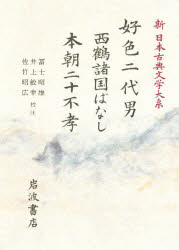 新日本古典文学大系
好色二代男
西鶴諸国ばなし
本朝二十不孝
冨士昭雄
井上敏幸 校注
佐竹昭広
岩波書店